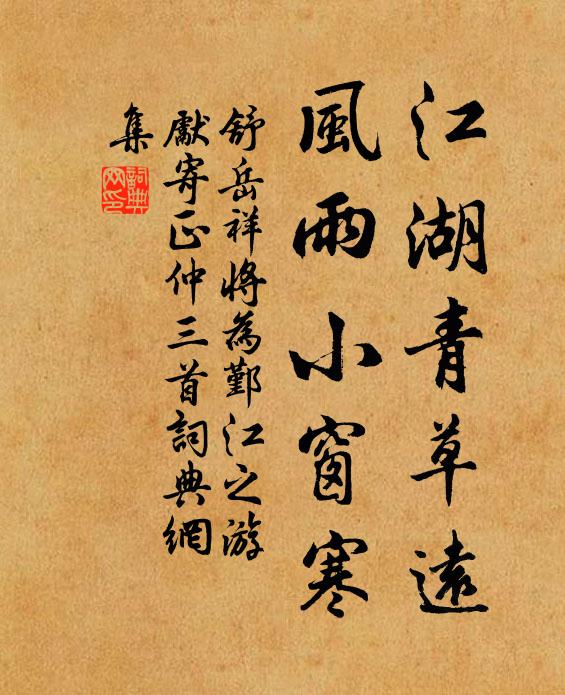 江湖青草遠
風雨小窗寒
舒岳祥將為鄞江之游
獻寄正仲三首詞典網
集
詞典
网印